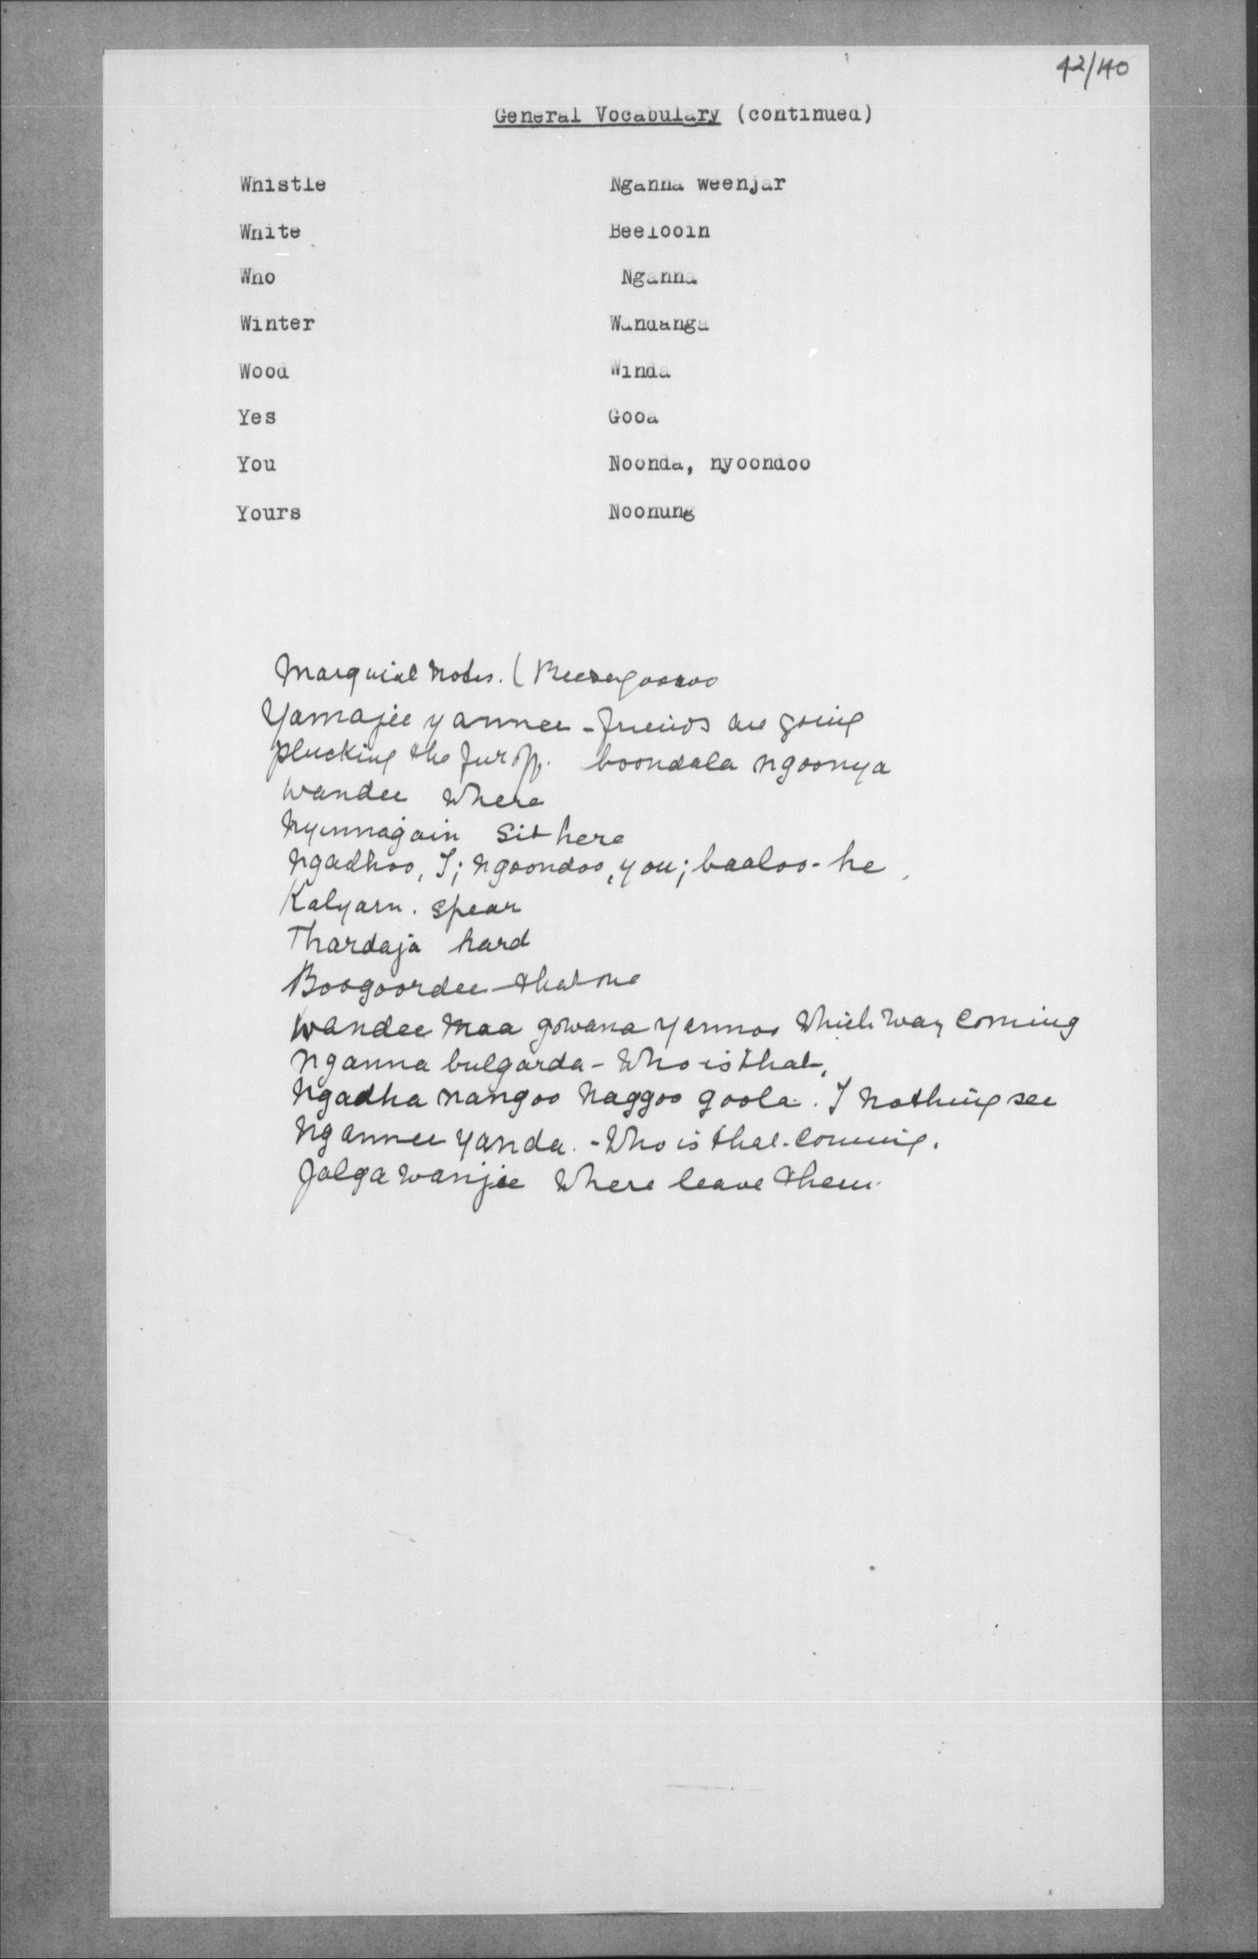 42/140
General Vocabulary (continued)
Whistle Nganna weenjar
White Beelooin
Who Nganna
Winter Wandanga
Wood Winda
Yes Gooa
You Noonda, nyoondoo
Yours Noonung
Marginal notes. (
Yamajee yannee - friends are going
plucking the fur off. boondala ngoonya
wandee where
Nyinnagain sit here
ngadhoo, I; ngoondoo, you; baaloo - he
Kalyarn. spear
Thardaja hard
Boogoordee - that one
Wandee maa gowana yannoo which way coming
Nganna bulgarda - Who is that.
Ngadha nangoo naggoo goola. I nothing see
Ngannee yanda. - Who is that coming.
Jalga wanjee where leave them.